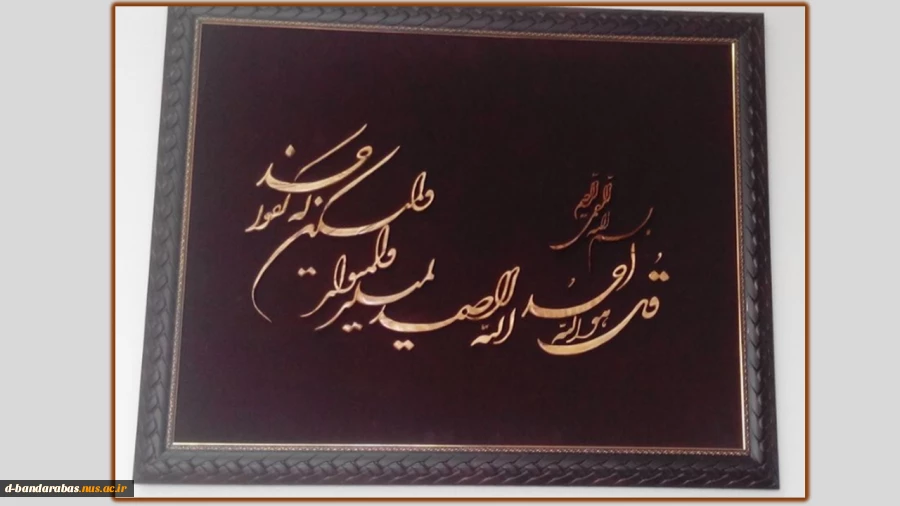 بسم الله الرحمن الرحیم
قل هو الله احد
الله الصمد
لم یلد ولم یولد
ولم یکن له کفوا احد
d-bandarabas.nus.ac.ir